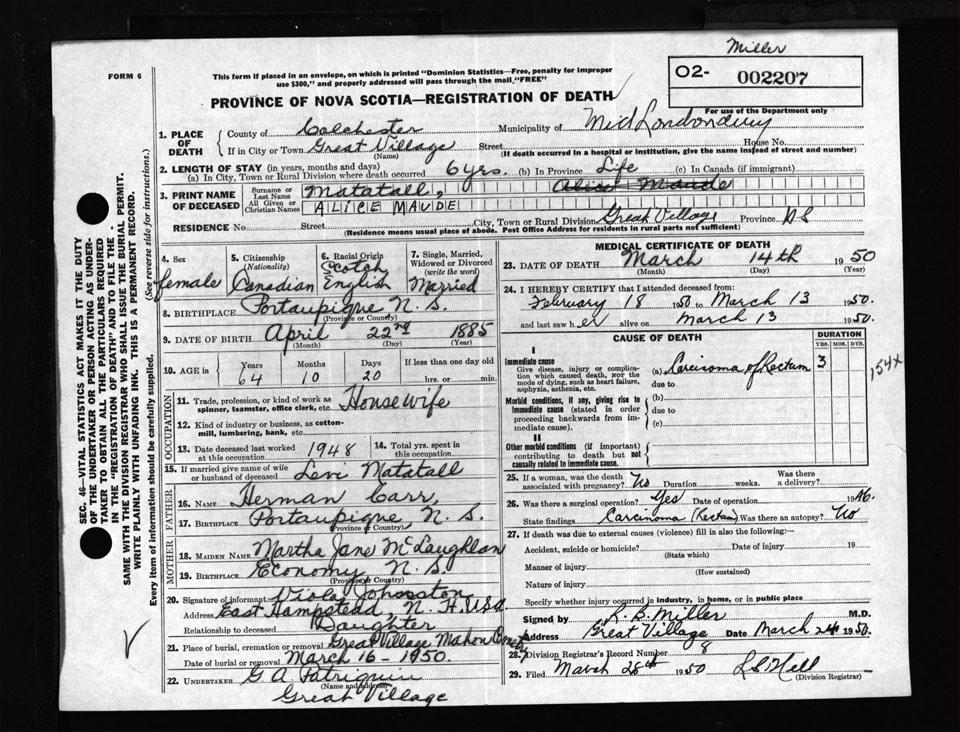 Miller
FORM 6
This form if placed in an envelope, on which is printed "Dominion Statistics—Free, penalty for improper
use $300," and properly addressed will pass through the mail, "FREE"
O2- 002207
For use of the Department only
PROVINCE OF NOVA SCOTIA—REGISTRATION OF DEATH
1. PLACE OF DEATH County of Colchester Municipality of Mid Londonderry
If in City or Town Great Village Street House No.
(Name) (If death occurred in a hospital or institution, give the name instead of street and number)
2. LENGTH OF STAY (in years, months and days)
(a) In City, Town or Rural Division where death occurred 6 yrs. (b) In Province Life (c) In Canada (if immigrant)
3. PRINT NAME OF DECEASED Surname or Last Name Matatall, Alice Maude
All Given or Christian Names ALICE MAUDE
RESIDENCE No. Street City, Town or Rural Division Great Village Province N S
(Residence means usual place of abode. Post Office Address for residents in rural parts not sufficient)
4. Sex female
5. Citizenship (Nationality) Canadian
6. Racial Origin Scotch English
7. Single, Married, Widowed or Divorced (write the word) Married
8. BIRTHPLACE Portaupique N. S.
(Province or Country)
9. DATE OF BIRTH April 22nd 1885
(Month) (Day) (Year)
10. AGE in Years 64 Months 10 Days 20 If less than one day old hrs. or min.
OCCUPATION
11. Trade, profession, or kind of work as spinner, teamster, office clerk, etc. Housewife
12. Kind of industry or business, as cotton-mill, lumbering, bank, etc.
13. Date deceased last worked at this occupation 1948
14. Total yrs. spent in this occupation
15. If married give name of wife or husband of deceased Levi Matatall
FATHER
16. NAME Herman Carr,
17. BIRTHPLACE Portaupique, N. S.
(Province or Country)
MOTHER
18. MAIDEN NAME Martha Jane McLaughlan
19. BIRTHPLACE Economy N. S.
(Province or Country)
20. Signature of informant Viola Johnston
Address East Hampstead, N. H. USA
Relationship to deceased Daughter
21. Place of burial, cremation or removal Great Village Mahon Cemetery
Date of burial or removal March 16 - 1950.
22. UNDERTAKER G A Patriquin
(Name and address)
Great Village
MEDICAL CERTIFICATE OF DEATH
23. DATE OF DEATH March 14th 1950
(Month) (Day) (Year)
24. I HEREBY CERTIFY that I attended deceased from:
February 18 1950 to March 13 1950.
and last saw her alive on March 13 1950.
CAUSE OF DEATH
DURATION
YRS. MOS. DYS.
I
Immediate cause
Give disease, injury or complication which caused death, not the mode of dying, such as heart failure, asphyxia, asthenia, etc.
(a) Carcinoma of Rectum 3
154x
due to
Morbid conditions, if any, giving rise to immediate cause (stated in order proceeding backwards from immediate cause).
(b)
due to
(c)
II
Other morbid conditions (if important) contributing to death but not causally related to immediate cause.
25. If a woman, was the death associated with pregnancy? No Duration weeks. Was there a delivery?
26. Was there a surgical operation? Yes Date of operation 1946.
State findings Carcinoma (Rectum) Was there an autopsy? No
27. If death was due to external causes (violence) fill in also the following:—
Accident, suicide or homicide? Date of injury 19
(State which)
Manner of injury
(How sustained)
Nature of injury
Specify whether injury occurred in industry, in home, or in public place
Signed by R. B. Miller M.D.
Address Great Village Date March 24 1950.
28. Division Registrar's Record Number 8
29. Filed March 28th 1950
(Division Registrar)
SEC. 46—VITAL STATISTICS ACT MAKES IT THE DUTY
OF THE UNDERTAKER OR PERSON ACTING AS UNDER-
TAKER TO OBTAIN ALL THE PARTICULARS REQUIRED
IN THE "REGISTRATION OF DEATH" AND TO FILE THE
SAME WITH THE DIVISION REGISTRAR WHO SHALL ISSUE THE BURIAL PERMIT.
WRITE PLAINLY WITH UNFADING INK. THIS IS A PERMANENT RECORD.
Every item of information should be carefully supplied. (See reverse side for instructions.)